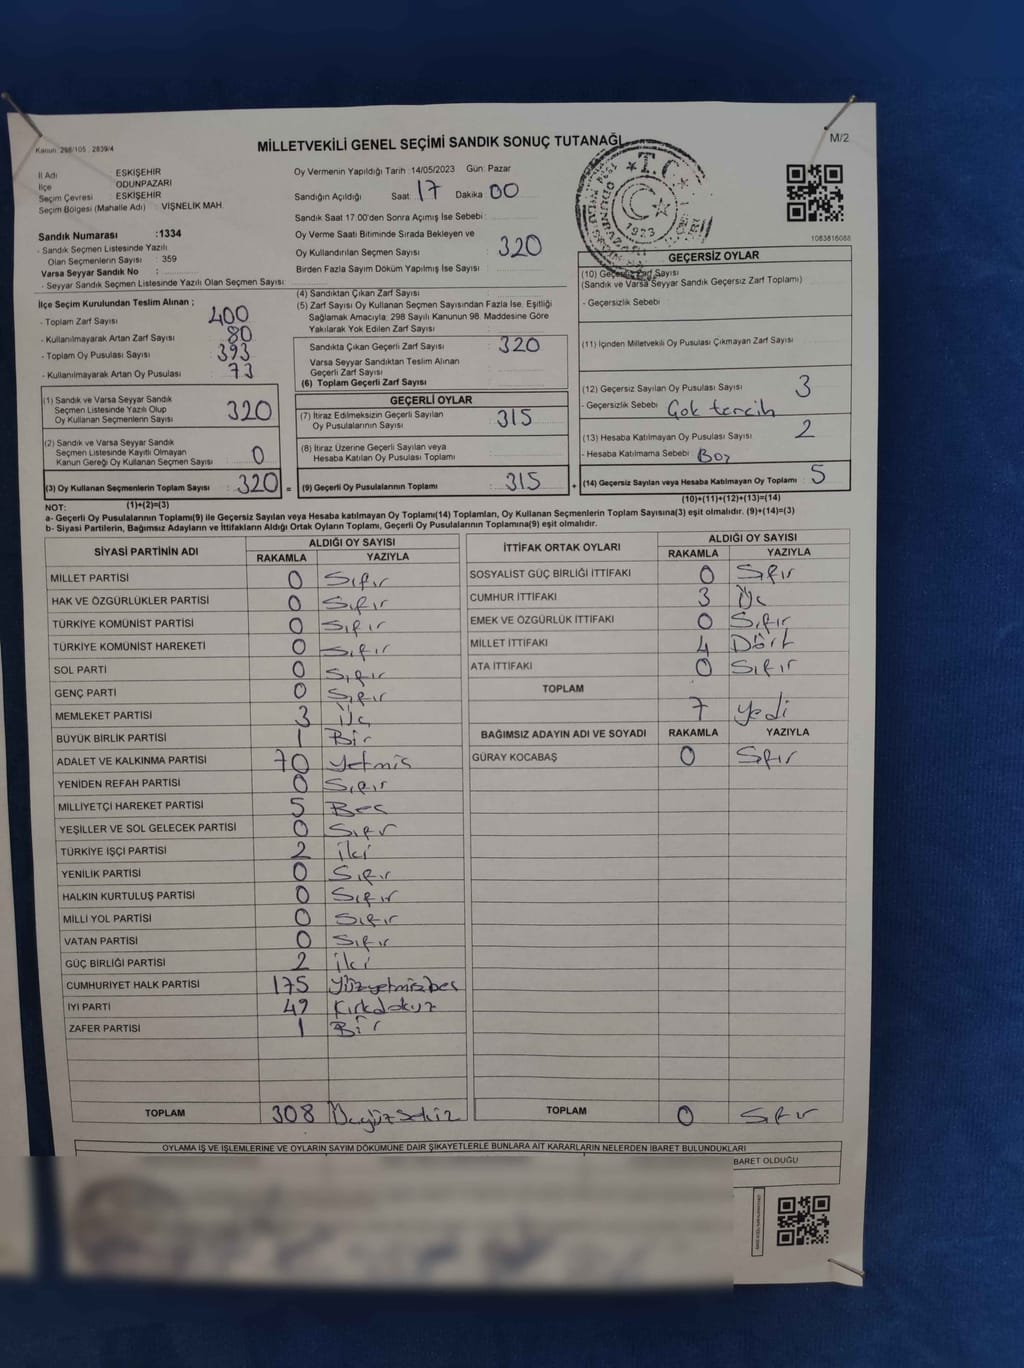 Kanun: 298/105 : 2839/4
MİLLETVEKİLİ GENEL SEÇİMİ SANDIK SONUÇ TUTANAĞI
M/2
İl Adı ESKİŞEHİR
İlçe ODUNPAZARI
Seçim Çevresi ESKİŞEHİR
Seçim Bölgesi (Mahalle Adı) : VİŞNELİK MAH.
Sandık Numarası :1334
- Sandık Seçmen Listesinde Yazılı
Olan Seçmenlerin Sayısı : 359
Varsa Seyyar Sandık No :
- Seyyar Sandık Seçmen Listesinde Yazılı Olan Seçmen Sayısı:
Oy Vermenin Yapıldığı Tarih :14/05/2023 Gün: Pazar
Sandığın Açıldığı Saat: 17 Dakika 00
Sandık Saat 17.00'den Sonra Açımış İse Sebebi :
Oy Verme Saati Bitiminde Sırada Bekleyen ve
Oy Kullandırılan Seçmen Sayısı : 320
Birden Fazla Sayım Döküm Yapılmış İse Sayısı :
T.C.
1923
1083816088
İlçe Seçim Kurulundan Teslim Alınan ;
- Toplam Zarf Sayısı 400
- Kullanılmayarak Artan Zarf Sayısı : 80
- Toplam Oy Pusulası Sayısı : 393
- Kullanılmayarak Artan Oy Pusulası : 73
(1) Sandık ve Varsa Seyyar Sandık
Seçmen Listesinde Yazılı Olup
Oy Kullanan Seçmenlerin Sayısı 320
(2) Sandık ve Varsa Seyyar Sandık
Seçmen Listesinde Kayıtlı Olmayan
Kanun Gereği Oy Kullanan Seçmen Sayısı 0
(3) Oy Kullanan Seçmenlerin Toplam Sayısı : 320 =
(4) Sandıktan Çıkan Zarf Sayısı :
(5) Zarf Sayısı Oy Kullanan Seçmen Sayısından Fazla İse, Eşitliği
Sağlamak Amacıyla; 298 Sayılı Kanunun 98. Maddesine Göre
Yakılarak Yok Edilen Zarf Sayısı :
Sandıkta Çıkan Geçerli Zarf Sayısı : 320
Varsa Seyyar Sandıktan Teslim Alınan
Geçerli Zarf Sayısı :
(6) Toplam Geçerli Zarf Sayısı
GEÇERLİ OYLAR
(7) İtiraz Edilmeksizin Geçerli Sayılan
Oy Pusulalarının Sayısı : 315
(8) İtiraz Üzerine Geçerli Sayılan veya
Hesaba Katılan Oy Pusulası Toplamı :
(9) Geçerli Oy Pusulalarının Toplamı : 315 +
GEÇERSİZ OYLAR
(10) Geçersiz Zarf Sayısı
(Sandık ve Varsa Seyyar Sandık Geçersiz Zarf Toplamı)
- Geçersizlik Sebebi
(11) İçinden Milletvekili Oy Pusulası Çıkmayan Zarf Sayısı
(12) Geçersiz Sayılan Oy Pusulası Sayısı : 3
- Geçersizlik Sebebi Çok tercih
(13) Hesaba Katılmayan Oy Pusulası Sayısı : 2
- Hesaba Katılmama Sebebi Boş
(14) Geçersiz Sayılan veya Hesaba Katılmayan Oy Toplamı : 5
NOT: (1)+(2)=(3) (10)+(11)+(12)+(13)=(14)
a- Geçerli Oy Pusulalarının Toplamı(9) ile Geçersiz Sayılan veya Hesaba katılmayan Oy Toplamı(14) Toplamları, Oy Kullanan Seçmenlerin Toplam Sayısına(3) eşit olmalıdır. (9)+(14)=(3)
b- Siyasi Partilerin, Bağımsız Adayların ve İttifakların Aldığı Ortak Oyların Toplamı, Geçerli Oy Pusulalarının Toplamına(9) eşit olmalıdır.
SİYASİ PARTİNİN ADI ALDIĞI OY SAYISI
RAKAMLA YAZIYLA
MİLLET PARTİSİ 0 Sıfır
HAK VE ÖZGÜRLÜKLER PARTİSİ 0 Sıfır
TÜRKİYE KOMÜNİST PARTİSİ 0 Sıfır
TÜRKİYE KOMÜNİST HAREKETİ 0 Sıfır
SOL PARTİ 0 Sıfır
GENÇ PARTİ 0 Sıfır
MEMLEKET PARTİSİ 3 Üç
BÜYÜK BİRLİK PARTİSİ 1 Bir
ADALET VE KALKINMA PARTİSİ 70 Yetmiş
YENİDEN REFAH PARTİSİ 0 Sıfır
MİLLİYETÇİ HAREKET PARTİSİ 5 Beş
YEŞİLLER VE SOL GELECEK PARTİSİ 0 Sıfır
TÜRKİYE İŞÇİ PARTİSİ 2 iki
YENİLİK PARTİSİ 0 Sıfır
HALKIN KURTULUŞ PARTİSİ 0 Sıfır
MİLLİ YOL PARTİSİ 0 Sıfır
VATAN PARTİSİ 0 Sıfır
GÜÇ BİRLİĞİ PARTİSİ 2 iki
CUMHURİYET HALK PARTİSİ 175 Yüzyetmişbeş
İYİ PARTİ 49 Kırkdokuz
ZAFER PARTİSİ 1 Bir
TOPLAM 308 Üçyüzsekiz
İTTİFAK ORTAK OYLARI ALDIĞI OY SAYISI
RAKAMLA YAZIYLA
SOSYALİST GÜÇ BİRLİĞİ İTTİFAKI 0 Sıfır
CUMHUR İTTİFAKI 3 Üç
EMEK VE ÖZGÜRLÜK İTTİFAKI 0 Sıfır
MİLLET İTTİFAKI 4 Dört
ATA İTTİFAKI 0 Sıfır
TOPLAM 7 Yedi
BAĞIMSIZ ADAYIN ADI VE SOYADI RAKAMLA YAZIYLA
GÜRAY KOCABAŞ 0 Sıfır
TOPLAM 0 Sıfır
OYLAMA İŞ VE İŞLEMLERİNE VE OYLARIN SAYIM DÖKÜMÜNE DAİR ŞİKAYETLERLE BUNLARA AİT KARARLARIN NELERDEN İBARET BULUNDUKLARI
BARET OLDUĞU